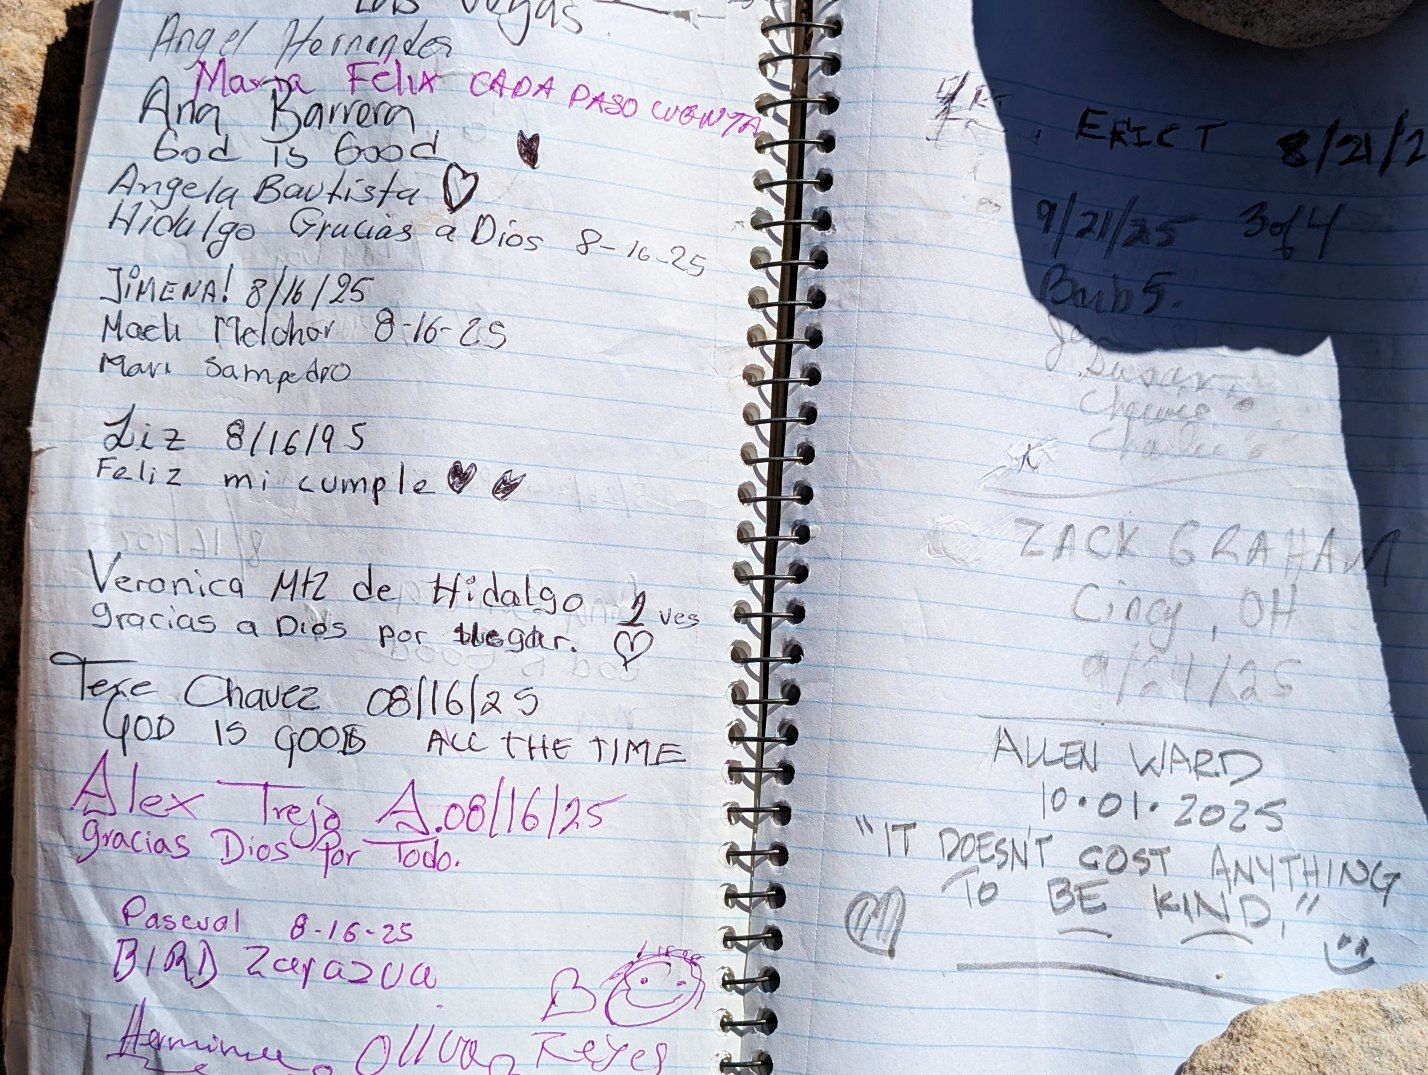 Las Vegas
Angel Hernandes
Maria Félix CADA PASO CUENTA
Ana Barrera
God is Good
Angela Bautista
Hidalgo Gracias a Dios 8-16-25
JIMENA! 8/16/25
Melchor 8-16-25
Mari Sampedro
Liz 8/16/95
Feliz mi cumple
Veronica Mtz de Hidalgo 2 ves
gracias a Dios por llegar.
Tere Chavez 08/16/25
GOD IS GOOD ALL THE TIME
Alex Trejo A. 08/16/25
gracias Dios por Todo.
Pascual 8-16-25
BIRD Zarazua
Reyes
ERIC T 8/21/2
9/21/25 3 of 4
Barb S.
Susan
Charlie
ZACK GRAHAM
Cincy, OH
9/24/25
ALLEN WARD
10.01.2025
"IT DOESN'T COST ANYTHING
TO BE KIND."